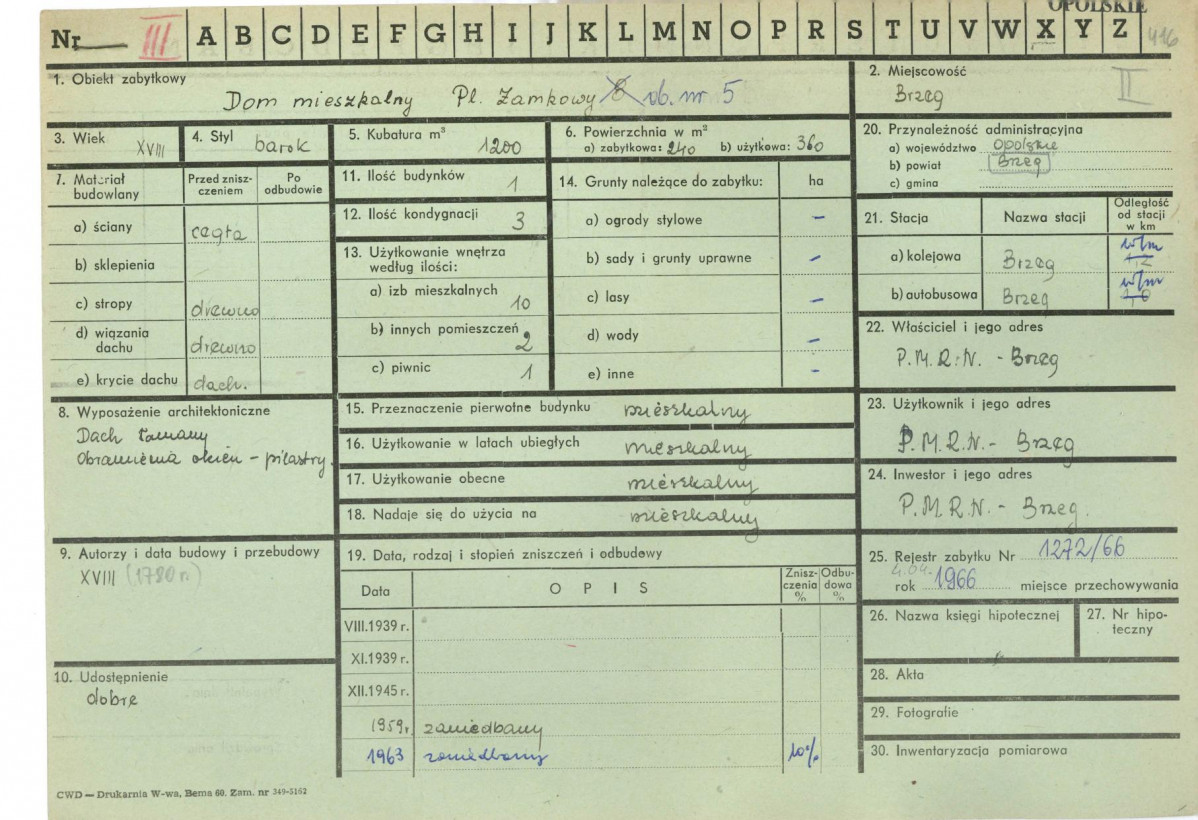 OPOLSKIE
Nr III A B C D E F G H I J K L M N O P R S T U V W X Y Z 416
1. Obiekt zabytkowy
Dom mieszkalny Pl. Zamkowy 8 ob. nr 5
2. Miejscowość
Brzeg II
3. Wiek XVIII
4. Styl barok
5. Kubatura m³ 1200
6. Powierzchnia w m²
a) zabytkowa: 240 b) użytkowa: 360
20. Przynależność administracyjna
a) województwo opolskie
b) powiat Brzeg
c) gmina
7. Materiał budowlany
Przed zniszczeniem
Po odbudowie
a) ściany cegła
b) sklepienia
c) stropy drewno
d) wiązania dachu drewno
e) krycie dachu dach.
11. Ilość budynków 1
12. Ilość kondygnacji 3
13. Użytkowanie wnętrza
według ilości:
a) izb mieszkalnych 10
b) innych pomieszczeń 2
c) piwnic 1
14. Grunty należące do zabytku: ha
a) ogrody stylowe –
b) sady i grunty uprawne –
c) lasy –
d) wody –
e) inne –
21. Stacja Nazwa stacji Odległość od stacji w km
a) kolejowa Brzeg w/m
b) autobusowa Brzeg w/m
22. Właściciel i jego adres
P.M.R.N. - Brzeg
8. Wyposażenie architektoniczne
Dach łamany
Obramienia okien – pilastry.
15. Przeznaczenie pierwotne budynku mieszkalny
16. Użytkowanie w latach ubiegłych mieszkalny
17. Użytkowanie obecne mieszkalny
18. Nadaje się do użycia na mieszkalny
23. Użytkownik i jego adres
P.M.R.N. - Brzeg
24. Inwestor i jego adres
P.M.R.N. - Brzeg.
9. Autorzy i data budowy i przebudowy
XVIII (1780 r.)
19. Data, rodzaj i stopień zniszczeń i odbudowy
Data OPIS Zniszczenia % Odbudowa %
VIII.1939 r.
XI.1939 r.
XII.1945 r.
1959r. zaniedbany
1963 zaniedbany 10%
25. Rejestr zabytku Nr 1272/66
4.04.
rok 1966 miejsce przechowywania
26. Nazwa księgi hipotecznej
27. Nr hipoteczny
10. Udostępnienie
dobre
28. Akta
29. Fotografie
30. Inwentaryzacja pomiarowa
CWD — Drukarnia W-wa, Bema 60. Zam. nr 349-3162